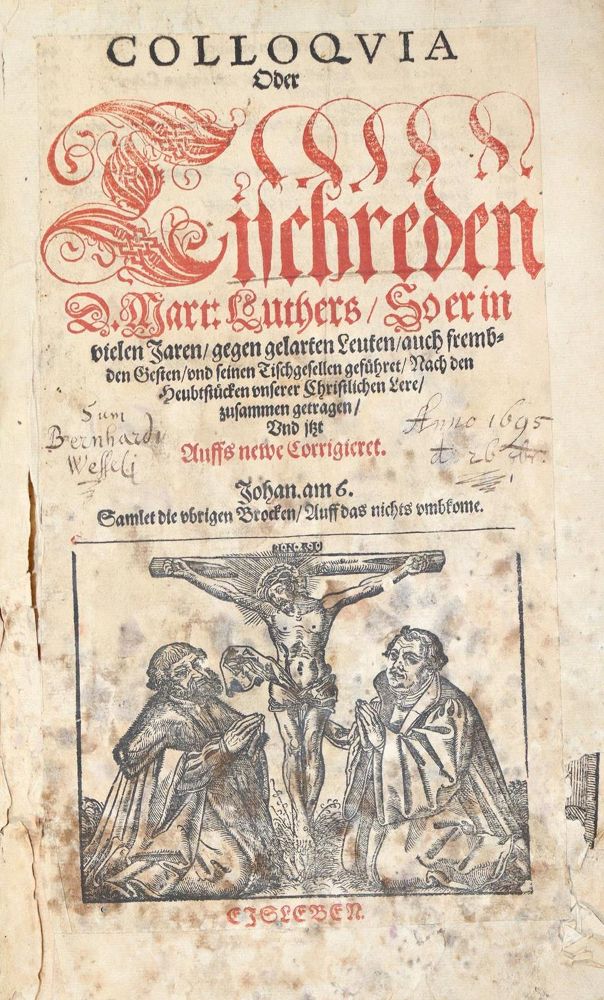 COLLOQVIA
Oder
Tischreden
D. Mart: Luthers / So er in
vielen Jaren / gegen gelarten Leuten / auch fremb-
den Gesten / vnd seinen Tischgesellen geführet / Nach den
Heubtstücken vnserer Christlichen Lere /
zusammen getragen /
Vnd jtzt
Auffs newe Corrigieret.
Sum
Bernhardi
Wesseli
Anno 1695
Johan. am 6.
Samlet die vbrigen Brocken / Auff das nichts vmbkome.
EJSLEBEN.